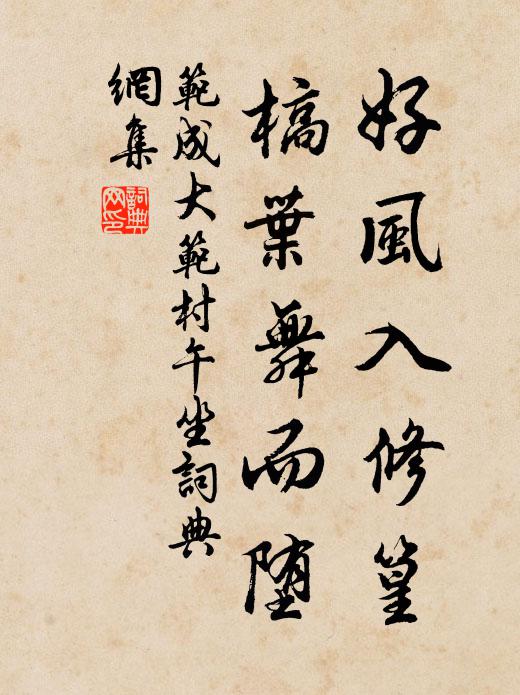 好風入修篁
槁葉舞而堕
範成大範村午坐詞典
網集
詞典
网印